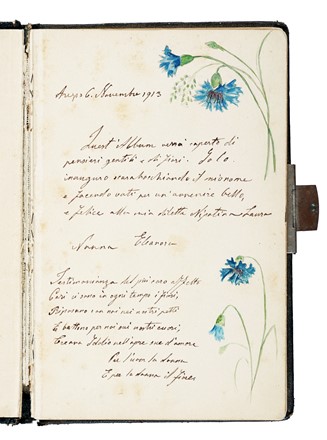 Arezzo 6. Novembre 1913
Quest'Album verrà coperto di
pensieri gentili e di fiori. Io lo
inauguro scarabocchiando il mio nome
e facendo voti per un avvenire bello,
e felice alla mia diletta Nipotina Laura
Nonna Eleonora
Testimonianza del più puro affetto
Cari ci sono in ogni tempo i fiori,
Riposano con noi nei nostri petti
E battono per noi nei nostri cuori,
Creava Iddio nell'opre sue d'amore
Per l'uom la donna
E per la donna il fiore